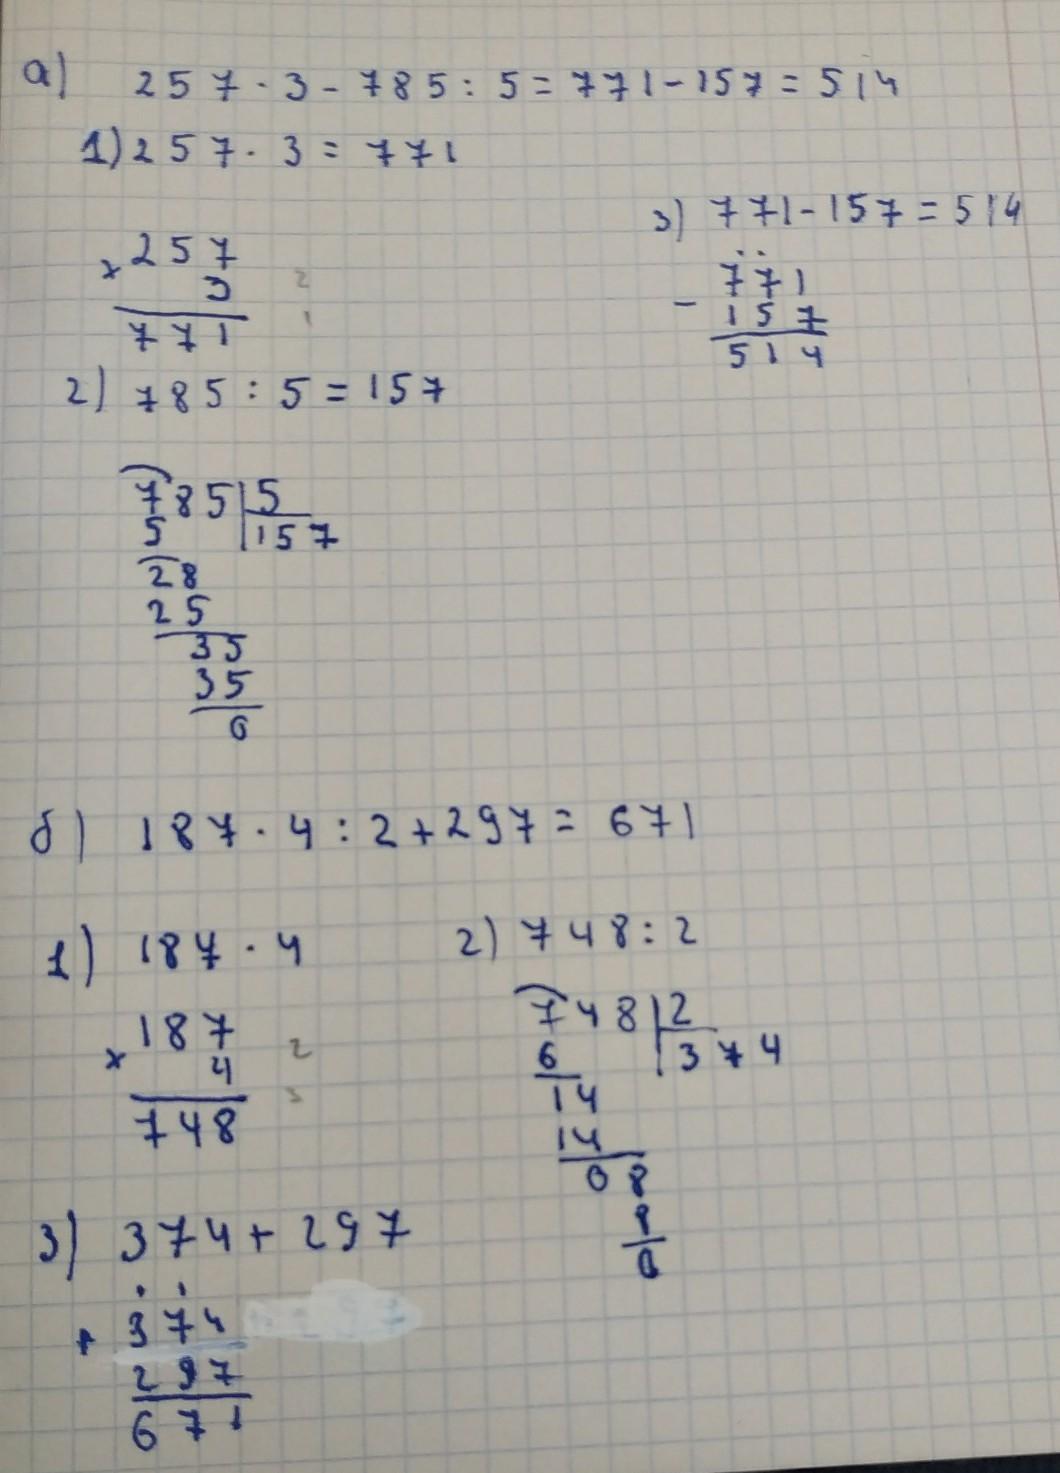 а) 257·3-785:5=771-157=514
1) 257·3=771
× 257
3 2
771 1
3) 771-157=514
- 771
157
514
2) 785:5=157
785|5
5 |157
28
25
35
35
0
б) 187·4:2+297=671
1) 187·4
× 187
4 2
748 3
2) 748:2
748|2
6 |374
14
14
08
8
0
3) 374+297
+ 374
297
671